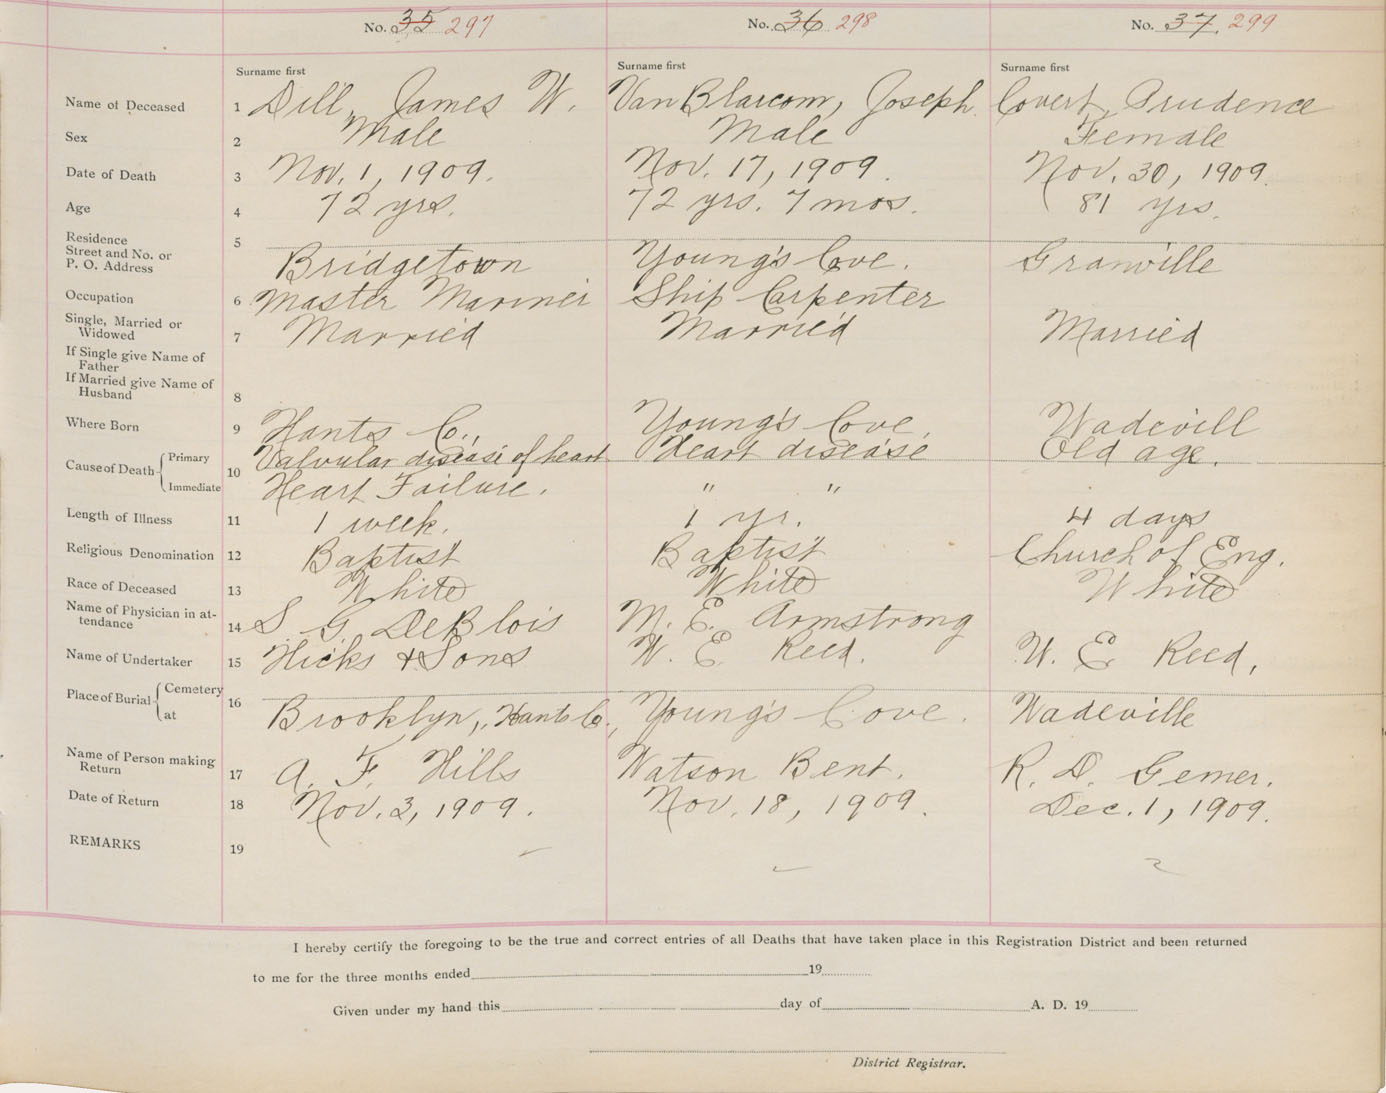 No. 35 297 No. 36 298 No. 37 299
Surname first Surname first Surname first
Name of Deceased 1 Dill, James W. VanBlarcom, Joseph Covert, Prudence
Sex 2 Male Male Female
Date of Death 3 Nov. 1, 1909. Nov. 17, 1909. Nov. 30, 1909.
Age 4 72 yrs. 72 yrs. 7 mos. 81 yrs.
Residence 5
Street and No. or
P. O. Address Bridgetown Young's Cove. Granville
Occupation 6 Master Mariner Ship Carpenter
Single, Married or
Widowed 7 Married Married Married
If Single give Name of
Father
If Married give Name of
Husband 8
Where Born 9 Hants Co., Young's Cove, Wadevill
Cause of Death Primary 10 Valvular disease of heart Heart disease Old age.
Immediate Heart Failure. " "
Length of Illness 11 1 week. 1 yr. 4 days
Religious Denomination 12 Baptist Baptist Church of Eng.
Race of Deceased 13 White White White
Name of Physician in at-
tendance 14 S. G. DeBlois M. E. Armstrong
Name of Undertaker 15 Hicks & Sons W. E. Reed. W. E. Reed,
Place of Burial Cemetery 16
at Brooklyn, Hants Co., Young's Cove. Wadeville
Name of Person making
Return 17 A. F. Hills Watson Bent. R. D. Gemer.
Date of Return 18 Nov. 3, 1909. Nov. 18, 1909. Dec. 1, 1909.
REMARKS 19
I hereby certify the foregoing to be the true and correct entries of all Deaths that have taken place in this Registration District and been returned
to me for the three months ended 19
Given under my hand this day of A. D. 19
District Registrar.